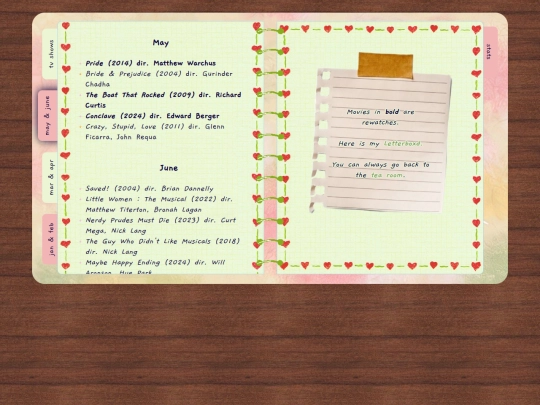 tv shows
may & june
mar & apr
jan & feb
May
Pride (2014) dir. Matthew Warchus
Bride & Prejudice (2004) dir. Gurinder
Chadha
The Boat That Rocked (2009) dir. Richard
Curtis
Conclave (2024) dir. Edward Berger
Crazy, Stupid, Love (2011) dir. Glenn
Ficarra, John Requa
June
Saved! (2004) dir. Brian Dannelly
Little Women : The Musical (2022) dir.
Matthew Titerton, Bronah Lagan
Nerdy Prudes Must Die (2023) dir. Curt
Mega, Nick Lang
The Guy Who Didn't Like Musicals (2018)
dir. Nick Lang
Maybe Happy Ending (2024) dir. Will
Aronson, Hue Park
Movies in bold are
rewatches.
Here is my Letterboxd.
You can always go back to
the tea room.
stats